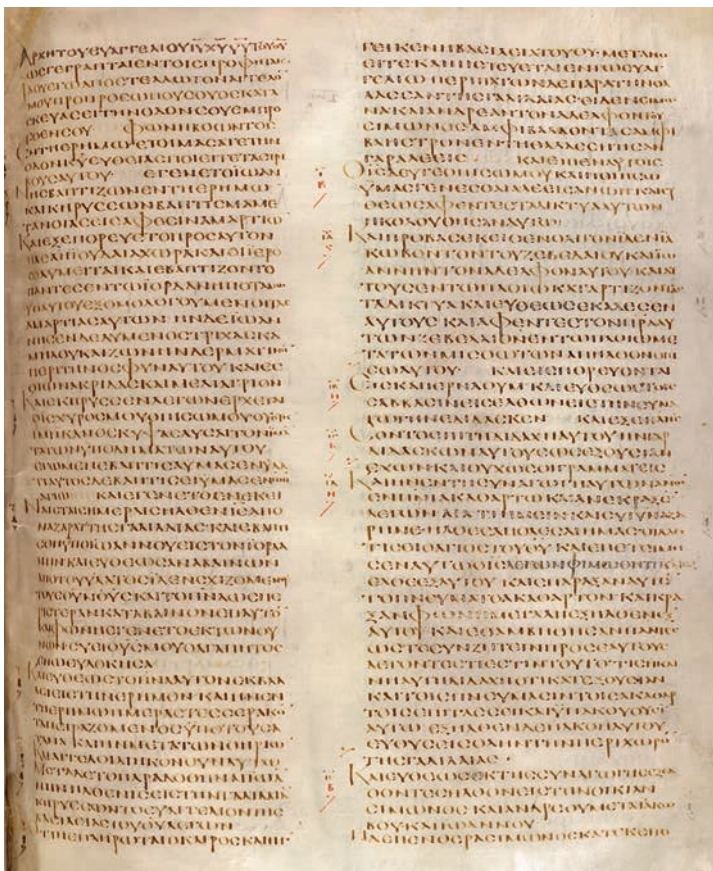 ΑΡΧΗΤΟΥΕΥΑΓΓΕΛΙΟΥΙΥΧΥΥΥΤΟΥΘΥ
ΩϹΓΕΓΡΑΠΤΑΙΕΝΤΟΙϹΠΡΟΦΗΤΑΙϹ
ΑΠΟϹΤΕΛΛΩΤΟΝΑΓΓΕΛΟ
ΜΟΥΠΡΟΠΡΟϹΩΠΟΥϹΟΥΟϹΚΑΤΑ
ϹΚΕΥΑϹΕΙΤΗΝΟΔΟΝϹΟΥΕΜΠΡΟ
ϹΘΕΝϹΟΥ ΦΩΝΗΒΟΩΝΤΟϹ
ΕΝΤΗΕΡΗΜΩΕΤΟΙΜΑϹΑΤΕΤΗΝ
ΟΔΟΝΚΥΕΥΘΕΙΑϹΠΟΙΕΙΤΕΤΑϹΤΡΙ
ΒΟΥϹΑΥΤΟΥ ΕΓΕΝΕΤΟΙΩΑΝ
ΝΗϹΒΑΠΤΙΖΩΝΕΝΤΗΕΡΗΜΩ
ΚΑΙΚΗΡΥϹϹΩΝΒΑΠΤΙϹΜΑΜΕ
ΤΑΝΟΙΑϹΕΙϹΑΦΕϹΙΝΑΜΑΡΤΙΩ
ΚΑΙΕΞΕΠΟΡΕΥΕΤΟΠΡΟϹΑΥΤΟΝ
ΠΑϹΑΗΙΟΥΔΑΙΑΧΩΡΑΚΑΙΟΙΙΕΡΟ
ϹΟΛΥΜΕΙΤΑΙΚΑΙΕΒΑΠΤΙΖΟΝΤΟ
ΠΑΝΤΕϹΕΝΤΩΙΟΡΔΑΝΗΠΟΤΑΜΩ
ΥΠΑΥΤΟΥΕΞΟΜΟΛΟΓΟΥΜΕΝΟΙΤΑϹ
ΑΜΑΡΤΙΑϹΑΥΤΩΝ ΗΝΔΕΙΩΑΝ
ΝΗϹΕΝΔΕΔΥΜΕΝΟϹΤΡΙΧΑϹΚΑ
ΜΗΛΟΥΚΑΙΖΩΝΗΝΔΕΡΜΑΤΙΝΗΝ
ΠΕΡΙΤΗΝΟϹΦΥΝΑΥΤΟΥΚΑΙΕϹ
ΘΙΩΝΑΚΡΙΔΑϹΚΑΙΜΕΛΙΑΓΡΙΟΝ
ΚΑΙΕΚΗΡΥϹϹΕΝΛΕΓΩΝΕΡΧΕΤΑΙ
ΟΙϹΧΥΡΟΤΕΡΟϹΜΟΥΟΠΙϹΩΜΟΥΟΥΟΥΚ
ΕΙΜΙΙΚΑΝΟϹΚΥΨΑϹΛΥϹΑΙΤΟΝΙΜΑ
ΤΑΤΩΝΥΠΟΔΗΜΑΤΩΝΑΥΤΟΥ
ΕΓΩΜΕΝΕΒΑΠΤΙϹΑΥΜΑϹΕΝΥΔΑ
ΤΙΑΥΤΟϹΔΕΒΑΠΤΙϹΕΙΥΜΑϹΕΝ
ΑΓΙΩ ΚΑΙΕΓΕΝΕΤΟΕΝΕΚΕΙ
ΝΑΙϹΤΑΙϹΗΜΕΡΑΙϹΗΛΘΕΝΙϹΑΠΟ
ΝΑΖΑΡΑΤΤΗϹΓΑΛΙΛΑΙΑϹΚΑΙΕΒΑΠΤΙ
ϹΘΗΥΠΟΙΩΑΝΝΟΥΕΙϹΤΟΝΙΟΡΔΑ
ΝΗΝΚΑΙΕΥΘΕΩϹΑΝΑΒΑΙΝΩΝ
ΑΠΟΤΟΥΥΔΑΤΟϹΙΔΕΝϹΧΙΖΟΜΕΝΟΥϹ
ΤΟΥϹΟΥΝΟΥϹΚΑΙΤΟΠΝΑΩϹΠΕ
ΡΙϹΤΕΡΑΝΚΑΤΑΒΑΙΝΟΝΕΠΑΥΤΟ
ΚΑΙΦΩΝΗΕΓΕΝΕΤΟΕΚΤΩΝΟΥ
ΝΩΝϹΥΕΙΟΥϹΜΟΥΟΑΓΑΠΗΤΟϹ
ΕΝΩΕΥΔΟΚΗϹΑ
ΚΑΙΕΥΘΕΩϹΤΟΠΝΑΑΥΤΟΝΕΚΒΑΛ
ΛΕΙΕΙϹΤΗΝΕΡΗΜΟΝΚΑΙΗΝΕΝ
ΤΗΕΡΗΜΩΗΜΕΡΑϹΤΕϹϹΕΡΑΚΟ
ΤΑΠΕΙΡΑΖΟΜΕΝΟϹΥΠΟΤΟΥϹΑ
ΤΑΝΑ ΚΑΙΗΝΜΕΤΑΤΩΝΘΗΡΙΩ
ΚΑΙΑΓΓΕΛΟΙΔΙΗΚΟΝΟΥΝΑΥΤΩ
ΜΕΤΑΔΕΤΟΠΑΡΑΔΟΘΗΝΑΙΙΩΑΝ
ΝΗΝΗΛΘΕΝΟΙϹΕΙϹΤΗΝΓΑΛΙΛΑΙΑ
ΚΗΡΥϹϹΩΝΤΟΕΥΑΓΓΕΛΙΟΝΤΗϹ
ΒΑϹΙΛΕΙΑϹΤΟΥΘΥΛΕΓΩΝ
ΟΤΙΠΕΠΛΗΡΩΤΑΙΟΚΑΙΡΟϹΚΑΙΗΓ
ΓΕΙΚΕΝΗΒΑϹΙΛΕΙΑΤΟΥΘΥ ΜΕΤΑΝΟ
ΕΙΤΕΚΑΙΠΙϹΤΕΥΕΤΑΙΕΝΤΩΕΥΑΓ
ΓΕΛΙΩ ΠΕΡΙΠΑΤΩΝΔΕΠΑΡΑΤΗΝΘΑ
ΛΑϹϹΑΝΤΗϹΓΑΛΙΛΑΙΑϹΕΙΔΕΝϹΙΜΩ
ΝΑΚΑΙΑΝΔΡΕΑΝΤΟΝΑΔΕΛΦΟΝΑΥ
ϹΙΜΩΝΟϹΑΜΦΙΒΑΛΛΟΝΤΑϹΑΜΦΙ
ΒΛΗϹΤΡΟΝΕΝΤΗΘΑΛΑϹϹΗΗϹΑΝ
ΓΑΡΑΛΕΕΙϹ ΚΑΙΕΙΠΕΝΑΥΤΟΙϹ
ΟΙϹΔΕΥΤΕΟΠΙϹΩΜΟΥΚΑΙΠΟΙΗϹΩ
ΥΜΑϹΓΕΝΕϹΘΑΙΑΛΕΕΙϹΑΝΩΝΚΑΙΕΥ
ΘΕΩϹΑΦΕΝΤΕϹΤΑΔΙΚΤΥΑΑΥΤΩΝ
ΗΚΟΛΟΥΘΗϹΑΝΑΥΤΩ
ΚΑΙΠΡΟΒΑϹΕΚΕΙΘΕΝΟΛΙΓΟΝΙΔΕΝΙΑ
ΚΩΒΟΝΤΟΝΤΟΥΖΕΒΕΔΑΙΟΥΚΑΙΙΩ
ΑΝΝΗΝΤΟΝΑΔΕΛΦΟΝΑΥΤΟΥΚΑΙΑΥ
ΤΟΥϹΕΝΤΩΠΛΟΙΩΚΑΤΑΡΤΙΖΟΝΤΑϹ
ΤΑΔΙΚΤΥΑΚΑΙΕΥΘΕΩϹΕΚΑΛΕϹΕΝ
ΑΥΤΟΥϹ ΚΑΙΑΦΕΝΤΕϹΤΟΝΠΡΑΑΥ
ΤΩΝΖΕΒΕΔΑΙΟΝΕΝΤΩΠΛΟΙΩΜΕ
ΤΑΤΩΝΜΙϹΘΩΤΩΝΑΠΗΛΘΟΝΟΠΙ
ϹΩΑΥΤΟΥ ΚΑΙΕΙϹΠΟΡΕΥΟΝΤΑΙ
ΕΙϹΚΑΠΕΡΝΑΟΥΜ ΚΑΙΕΥΘΕΩϹΤΟΙϹ
ϹΑΒΒΑϹΙΝΕΙϹΕΛΘΩΝΕΙϹΤΗΝϹΥΝΑ
ΓΩΓΗΝΕΔΙΔΑϹΚΕΝ ΚΑΙΕΞΕΠΛΗϹ
ϹΟΝΤΟΕΠΙΤΗΔΙΔΑΧΗΑΥΤΟΥΗΝΓΑΡ
ΔΙΔΑϹΚΩΝΑΥΤΟΥϹΩϹΕΞΟΥϹΙΑΝ
ΕΧΩΝΚΑΙΟΥΧΩϹΟΙΓΡΑΜΜΑΤΕΙϹ
ΚΑΙΗΝΕΝΤΗϹΥΝΑΓΩΓΗΑΥΤΩΝΑΝΟϹ
ΕΝΠΝΙΑΚΑΘΑΡΤΩΚΑΙΑΝΕΚΡΑΞΕ
ΛΕΓΩΝΕΑΤΙΗΜΙΝΚΑΙϹΟΙΙΥΝΑΖΑ
ΡΗΝΕ ΗΛΘΕϹΑΠΟΛΕϹΑΙΗΜΑϹΟΙΔΑϹΕ
ΤΙϹΕΙΟΑΓΙΟϹΤΟΥΘΥ ΚΑΙΕΠΕΤΕΙΜΗ
ϹΕΝΑΥΤΩΟΙϹΛΕΓΩΝΦΙΜΩΘΗΤΙΚΑΙΕΞ
ΕΛΘΕΕΞΑΥΤΟΥ ΚΑΙϹΠΑΡΑΞΑΝΑΥΤΟ
ΤΟΠΝΕΥΜΑΤΟΑΚΑΘΑΡΤΟΝΚΑΙΚΡΑ
ΞΑΝΦΩΝΗΜΕΓΑΛΗΕΞΗΛΘΕΝΕΞ
ΑΥΤΟΥ ΚΑΙΕΘΑΜΒΗΘΗϹΑΝΠΑΝΤΕϹ
ΩϹΤΕϹΥΝΖΗΤΕΙΝΠΡΟϹΕΑΥΤΟΥϹ
ΛΕΓΟΝΤΕϹΤΙΕϹΤΙΝΤΟΥΤΟ ΤΙϹΗΚΑΙ
ΝΗΑΥΤΗΔΙΔΑΧΗΟΤΙΚΑΤΕΞΟΥϹΙΑΝ
ΚΑΙΤΟΙϹΠΝΕΥΜΑϹΙΝΤΟΙϹΑΚΑΘΑΡ
ΤΟΙϹΕΠΙΤΑϹϹΕΙΚΑΙΥΠΑΚΟΥΟΥϹΙ
ΑΥΤΩ ΕΞΗΛΘΕΝΔΕΗΑΚΟΗΑΥΤΟΥ
ΕΥΘΥϹΕΙϹΟΛΗΝΤΗΝΠΕΡΙΧΩΡΟ
ΤΗϹΓΑΛΙΛΑΙΑϹ
ΚΑΙΕΥΘΕΩϹΕΚΤΗϹϹΥΝΑΓΩΓΗϹΕΞΕΛ
ΘΟΝΤΕϹΗΛΘΟΝΕΙϹΤΗΝΟΙΚΙΑΝ
ϹΙΜΩΝΟϹ ΚΑΙΑΝΔΡΕΟΥΜΕΤΑΙΑΚΩ
ΒΟΥΚΑΙΙΩΑΝΝΟΥ
ΗΔΕΠΕΝΘΕΡΑϹΙΜΩΝΟϹΚΑΤΕΚΕΙΤΟ